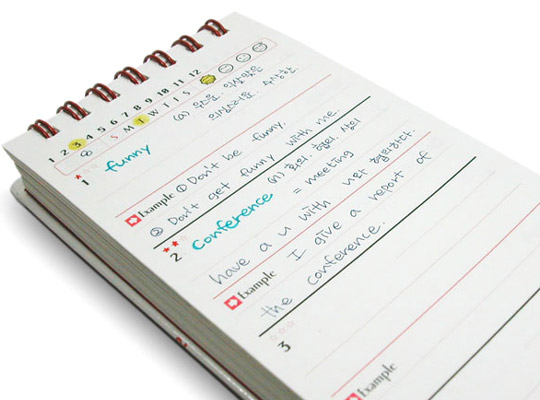 1 2 3 4 5 6 7 8 9 10 11 12
S M T W T F S
1 funny (a) 우스운. 익살맞은
의심스러운. 수상한
Example ① Don't be funny.
② Don't get funny with me.
2 Conference (n) 회의. 협의. 상의
= meeting
have a u with 너와 협의하다.
Example I give a report of
the conference.
3
Example